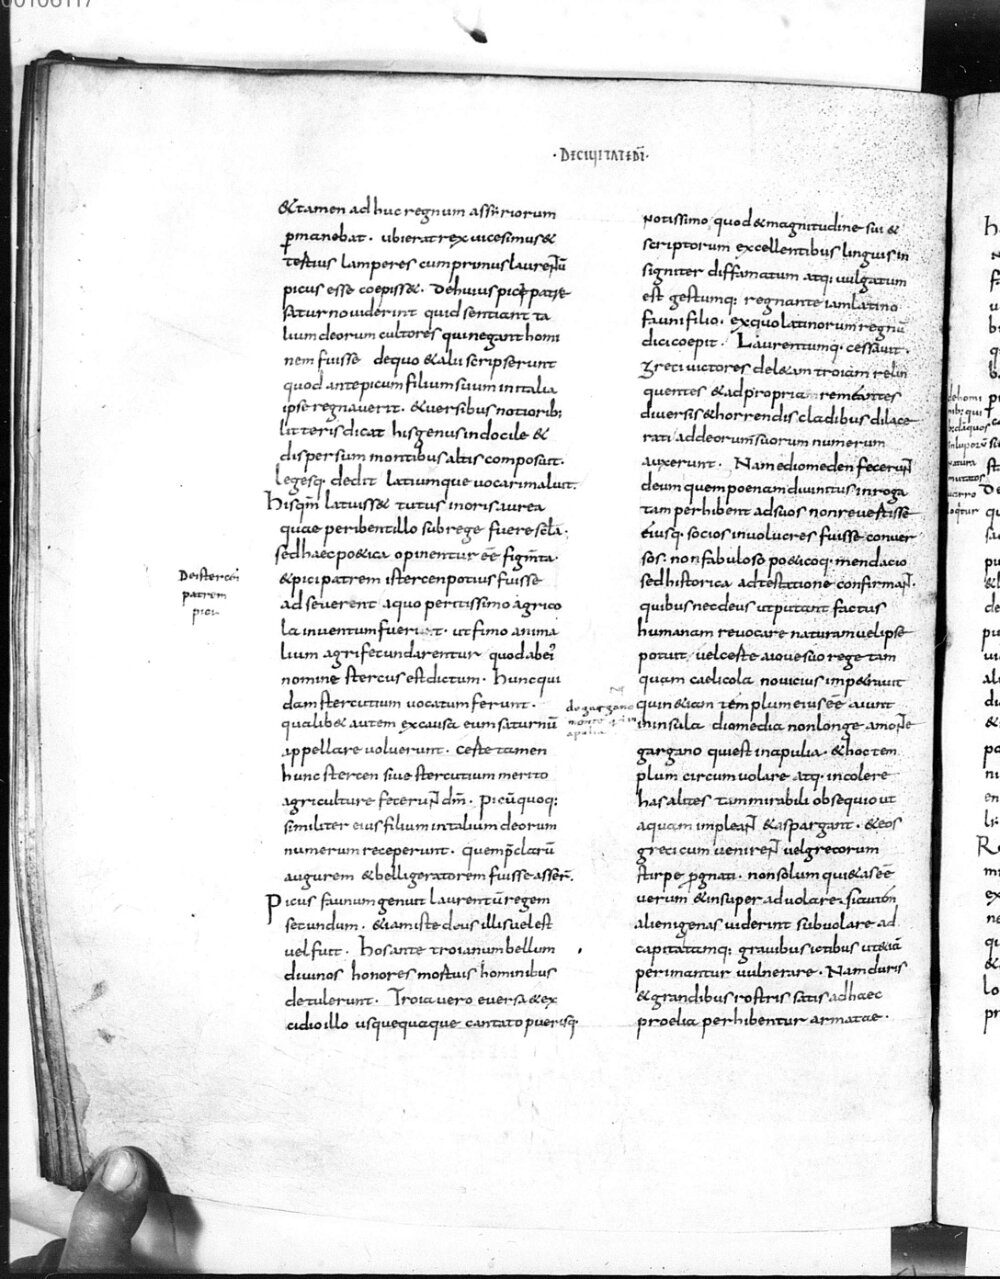 00106117
·DECIUITATEDĪ·
&tamen adhuc regnum assyriorum
ꝑmanebat. ubi erat rex uicesimus&
tertius lamperes cum primus laurentū
picus esse coepiss&. dehuius pici patre
saturno uiderint quid sentiant ta
lium deorum cultores qui negant homi
nem fuisse dequo &alii scripserunt
quod ante picum filium suum initalia
ipse regnauerit. &uersibus notiorib;
litteris dicat his genus indocile &
dispersum montibus altis composuit.
legesq· dedit latiumque uocari maluit.
Hisqm̄ latuiss& tutus in oris aurea
quae peribent illo sub rege fuere scła·
sed haec po&ica opinentur eē figm̄ta·
&pici patrem istercen potius fuisse
adseuerent aquo peritissimo agrico
la inuentum fuerint· ut fimo anima
lium agri fecundarentur quod ab ei'
nomine stercus est dictum· hunc qui
dam stercutium uocatum ferunt.
qualib& autem excausa eum saturnū
appellare uoluerunt· certe tamen
hunc stercen siue stercutium merito
agriculture fecerunt dm̄. picū quoq;
similiter eius filium intalium deorum
numerum receperunt. quem p̄clarū
augurem &belligeratorem fuisse asser̄.
Picus faunum genuit laurentū regem
secundum. &iam iste deus illis uel est
uel fuit. hos ante troianum bellum
diuinos honores mortuis hominibus
detulerunt. Troia uero euersa &ex
cidio illo usquequaque cantato puerisq·
Deistercen
patrem
pici
notissimo quod &magnitudine sui &
scriptorum excellentibus linguis in
signiter diffamatum atq; uulgatum
est gestumq; regnante iam latino
fauni filio. exquo latinorum regnū
dici coepit. Laurentumq· cessauit.
greci uictores del&am troiam relin
quentes &ad propria remeantes
diuersis &horrendis cladibus dilace
rati ad deorum suorum numerum
auxerunt. Nam ediomeden fecerunt
deum quem poenam diuinitus inroga
tam perhibent ad suos non reuertisse
eiusq· socios in uolucres fuisse conuer
sos· non fabuloso po&icoq· mendacio
sed historica adtestatione confirmant·
quibus nec deus ut putant factus
humanam reuocare naturam uel ipse
potuit. uel certe aioue suo rege tam
quam caelicola nouicius imp&rauit
quin &iam templum eius eē aiunt
in insula diomedia non longe a monte
gargano qui est in apulia· &hoc tem
plum circumuolare atq· incolere
has alites tam mirabili obsequio ut
aquam impleant &aspargant· &eos
greci cum uenirent uel grecorum
stirpe ꝑgnati· non solum qui&as eē
uerum &insuper aduolare· si autem
alienigenas uiderint subuolare ad
capita tamq; grauibus ictibus ut &iā
perimantur uulnerare. Nam duris
&grandibus rostris satis ad haec
proelia perhibentur armatae.
de gargano
monte qi in
apulia